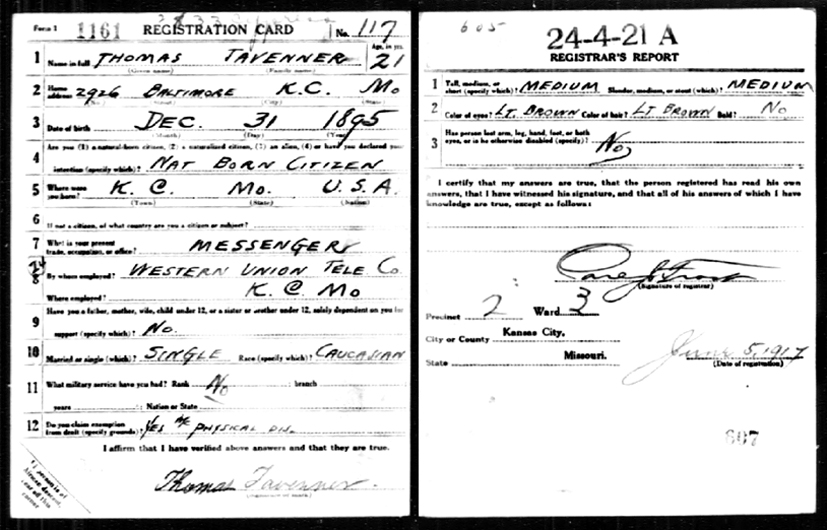 Form 1 1161 REGISTRATION CARD No. 117
1 Name in full THOMAS TAVENNER Age, in yrs. 21
(Given name) (Family name)
2 Home address 2926 BALTIMORE K.C. Mo
(No.) (Street) (City) (State)
3 Date of birth DEC. 31 1895
(Month) (Day) (Year)
4 Are you (1) a natural-born citizen, (2) a naturalized citizen, (3) an alien, (4) or have you declared your
intention (specify which)? NAT BORN CITIZEN
5 Where were you born? K.C. Mo. U.S.A.
(Town) (State) (Nation)
6 If not a citizen, of what country are you a citizen or subject?
7 What is your present trade, occupation, or office? MESSENGER
8 By whom employed? WESTERN UNION TELE CO.
Where employed? K.C. Mo
9 Have you a father, mother, wife, child under 12, or a sister or brother under 12, solely dependent on you for
support (specify which)? No.
10 Married or single (which)? SINGLE Race (specify which)? CAUCASIAN
11 What military service have you had? Rank No ; branch
years ; Nation or State
12 Do you claim exemption from draft (specify grounds)? YES PHYSICAL DIS.
I affirm that I have verified above answers and that they are true.
Thomas Tavenner.
605
24-4-21 A
REGISTRAR'S REPORT
1 Tall, medium, or short (specify which)? MEDIUM Slender, medium, or stout (which)? MEDIUM
2 Color of eyes? LT. BROWN Color of hair? LT BROWN Bald? No
3 Has person lost arm, leg, hand, foot, or both
eyes, or is he otherwise disabled (specify)? No
I certify that my answers are true, that the person registered has read his own
answers, that I have witnessed his signature, and that all of his answers of which I have
knowledge are true, except as follows:
(Signature of registrar)
Precinct 2 Ward 3
City or County Kansas City,
State Missouri. June 5, 1917
(Date of registration)
607